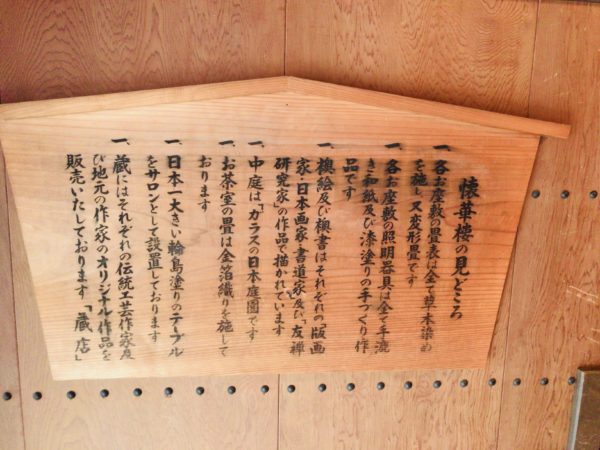 懐華樓の見どころ
一、各お座敷の畳表は全て草木染め
を施し又変形畳です
一、各お座敷の照明器具は全て手漉
き和紙及び漆塗りの手づくり作
品です
一、襖絵及び襖書はそれぞれの「版画
家・日本画家・書道家」及び「友禅
研究家」の作品で描かれています
一、中庭は「ガラスの日本庭園」です
一、お茶室の畳は金箔織りを施して
おります
一、日本一大きい輪島塗りのテーブル
をサロンとして設置しております
一、蔵にはそれぞれの伝統工芸作家及
び地元の作家のオリジナル作品を
販売いたしております「蔵店」